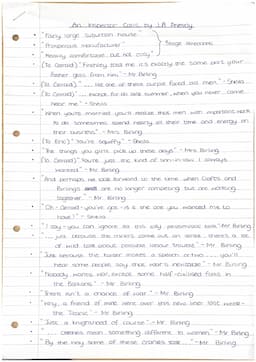 An Inspector Calls by J.B. Priestley
• "Fairly large suburban house"
• "Prosperous manufacturer" } Stage directions
• "Heavily comfortable but not cosy"
• (To Gerald) "Finchley told me it's exactly the same port your
father gets from him" - Mr. Birling
• (To Gerald) "... one of them purple faced old men." - Sheila
• (To Gerald) "... except for all last summer, when you never came
near me." - Sheila
• "When you're married you'll realise that men with important work
to do sometimes spend nearly all their time and energy on
their business" - Mrs. Birling
• (To Eric) "You're squiffy" - Sheila
• "The things you girls pick up these days" - Mrs Birling
• (To Gerald) "You're just the kind of son-in-law I always
wanted" - Mr. Birling
• "And perhaps we look forward to the time when Crofts and
Birlings are no longer competing but are working
together" - Mr. Birling
• "Oh - Gerald - you've got it - is it the one you wanted me to
have?" - Sheila
• "I say - you can ignore all this silly pessimistic talk" - Mr Birling
• "... just because the miners came out on strike, there's a lot
of wild talk about possible labour trouble" - Mr. Birling
• "Just because the Kaiser makes a speech or two ... you'll
hear some people say that war's inevitable" - Mr. Birling
• "Nobody wants war, except some half-civilised folks in
the Balkans" - Mr. Birling
• "There isn't a chance of war" - Mr. Birling
• "Why, a friend of mine went over this new liner last week -
the Titanic" - Mr. Birling
• "Just a knighthood of course" - Mr. Birling
• "... clothes mean something different to women" - Mr. Birling
• "By the way some of these cranks talk ..." - Mr. Birling